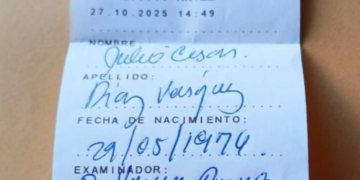 27.10.2025 14:49
NOMBRE:
Julio Cesar.
APELLIDO:
Diaz Vasquez
FECHA DE NACIMIENTO:
29/05/1974
EXAMINADOR: